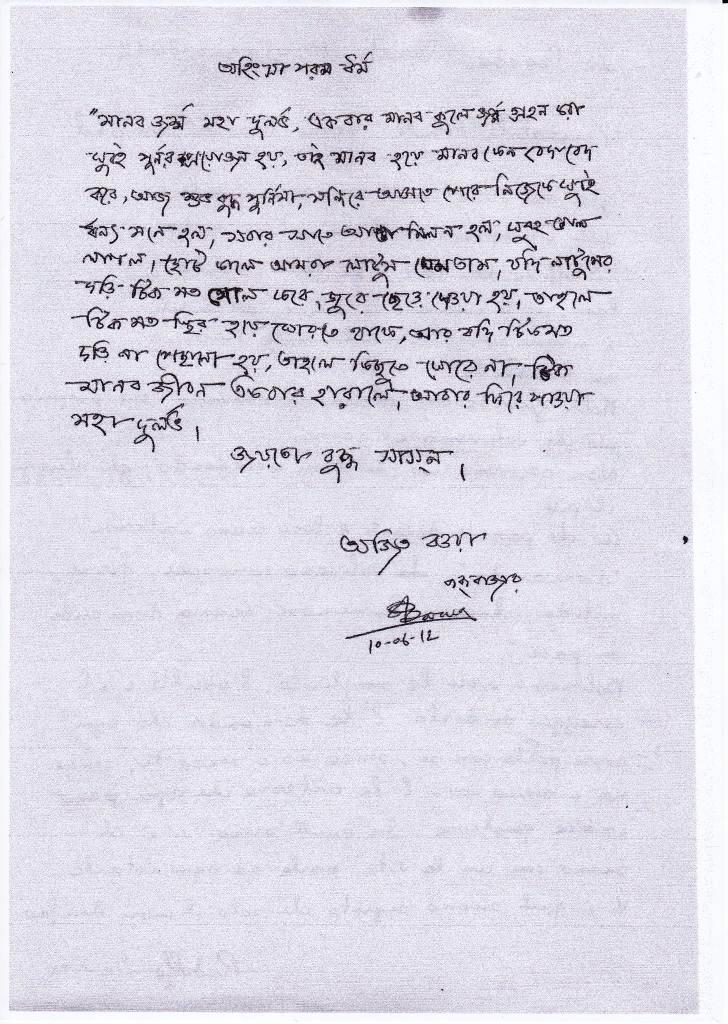 অহিংসা পরম ধর্ম
"মানব জন্ম মহা দুর্লভ, একবার মানব কুলে জন্ম গ্রহন করা
খুবই পূর্নর প্রয়োজন হয়, তাই মানব হয়ে মানব কেন ভেদাভেদ
করে, আজ শুভ বুদ্ধ পূর্নিমা, মন্দিরে আসতে পেরে নিজেকে খুবই
ধন্য মনে হল, সবার সাতে মিলন হল, খুবই ভাল
লাগল, ছোট কালে আমরা লাটুম খেলতাম, যদি লাটুমের
দড়ি ঠিক মত গোল করে, জুরে ছেড়ে দেওয়া হয়, তাহলে
ঠিক মত স্থির হয়ে ঘোরতে থাকে, আর যদি ঠিকমত
দড়ি না পেছানো হয়, তাহলে কিছুতে ঘোরে না, ঠিক
মানব জীবন একবার হারালে, আবার ফিরে পাওয়া
মহা দুর্লভ।
জয়তো বুদ্ধ সাসন।
অজিত বড়ুয়া
10-06-12